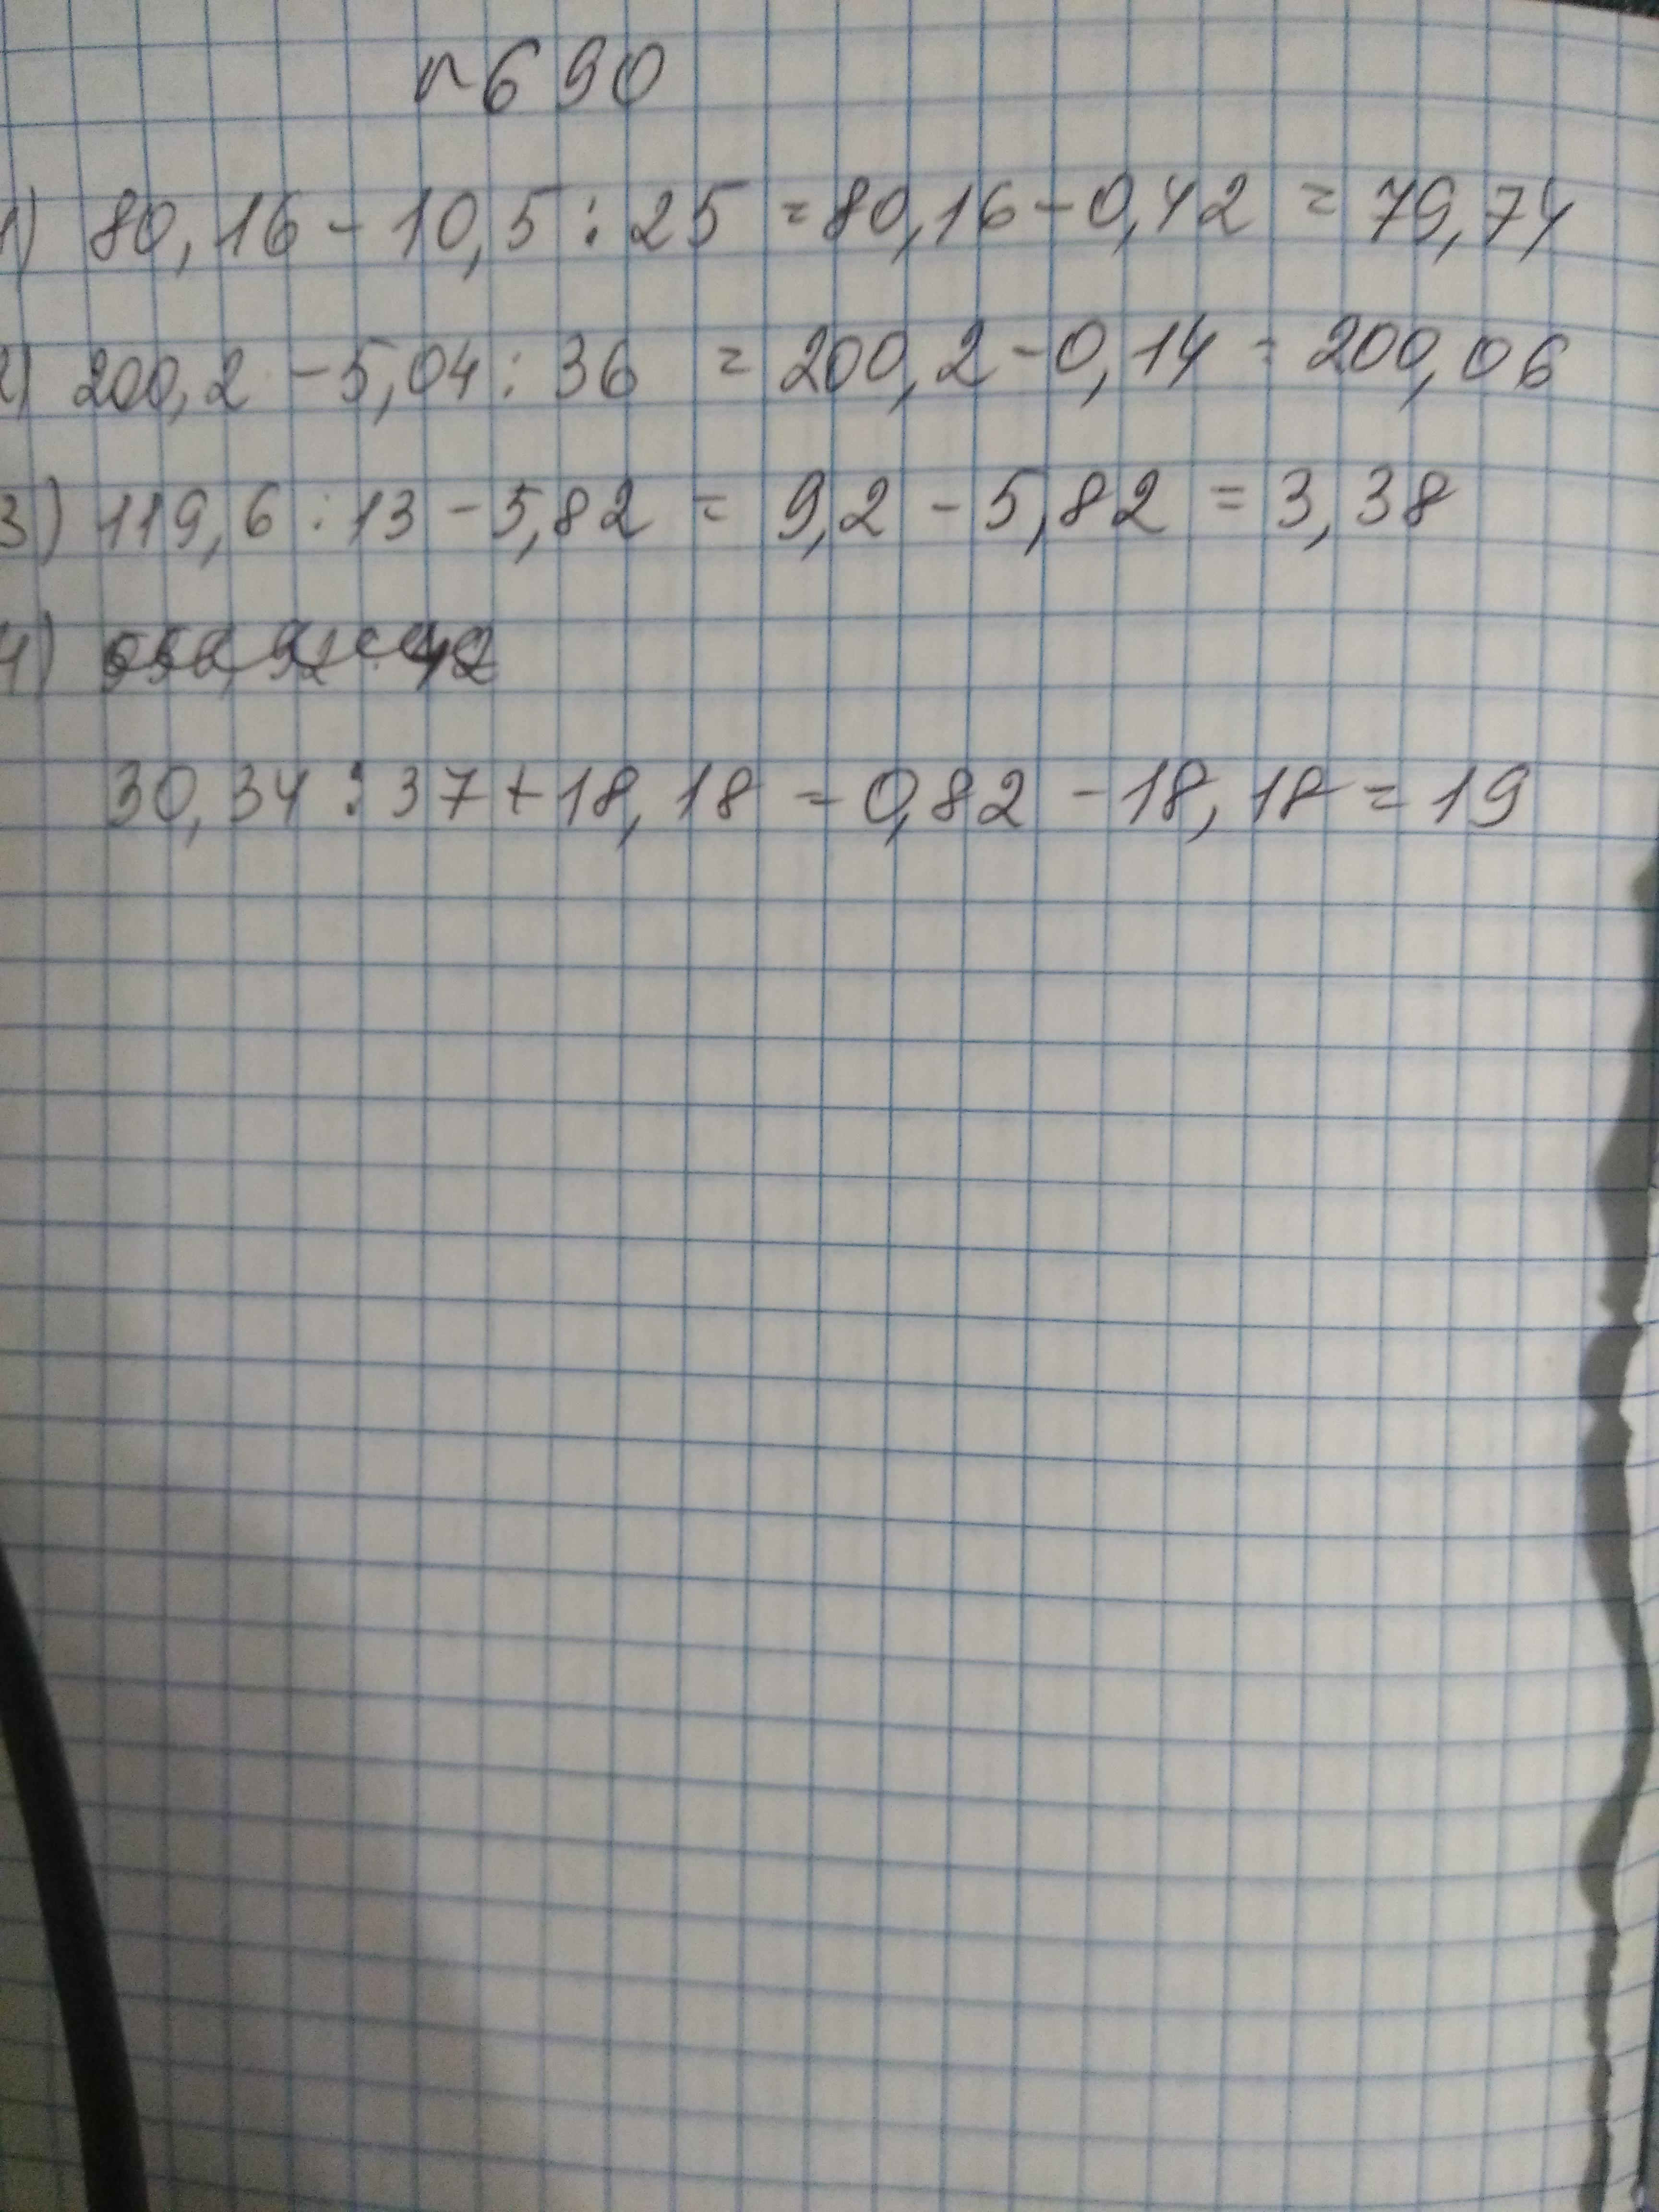 n690
1) 80,16 - 10,5 : 25 = 80,16 - 0,42 = 79,74
2) 200,2 - 5,04 : 36 = 200,2 - 0,14 = 200,06
3) 119,6 : 13 - 5,82 = 9,2 - 5,82 = 3,38
4)
30,34 : 37 + 18,18 = 0,82 - 18,18 = 19